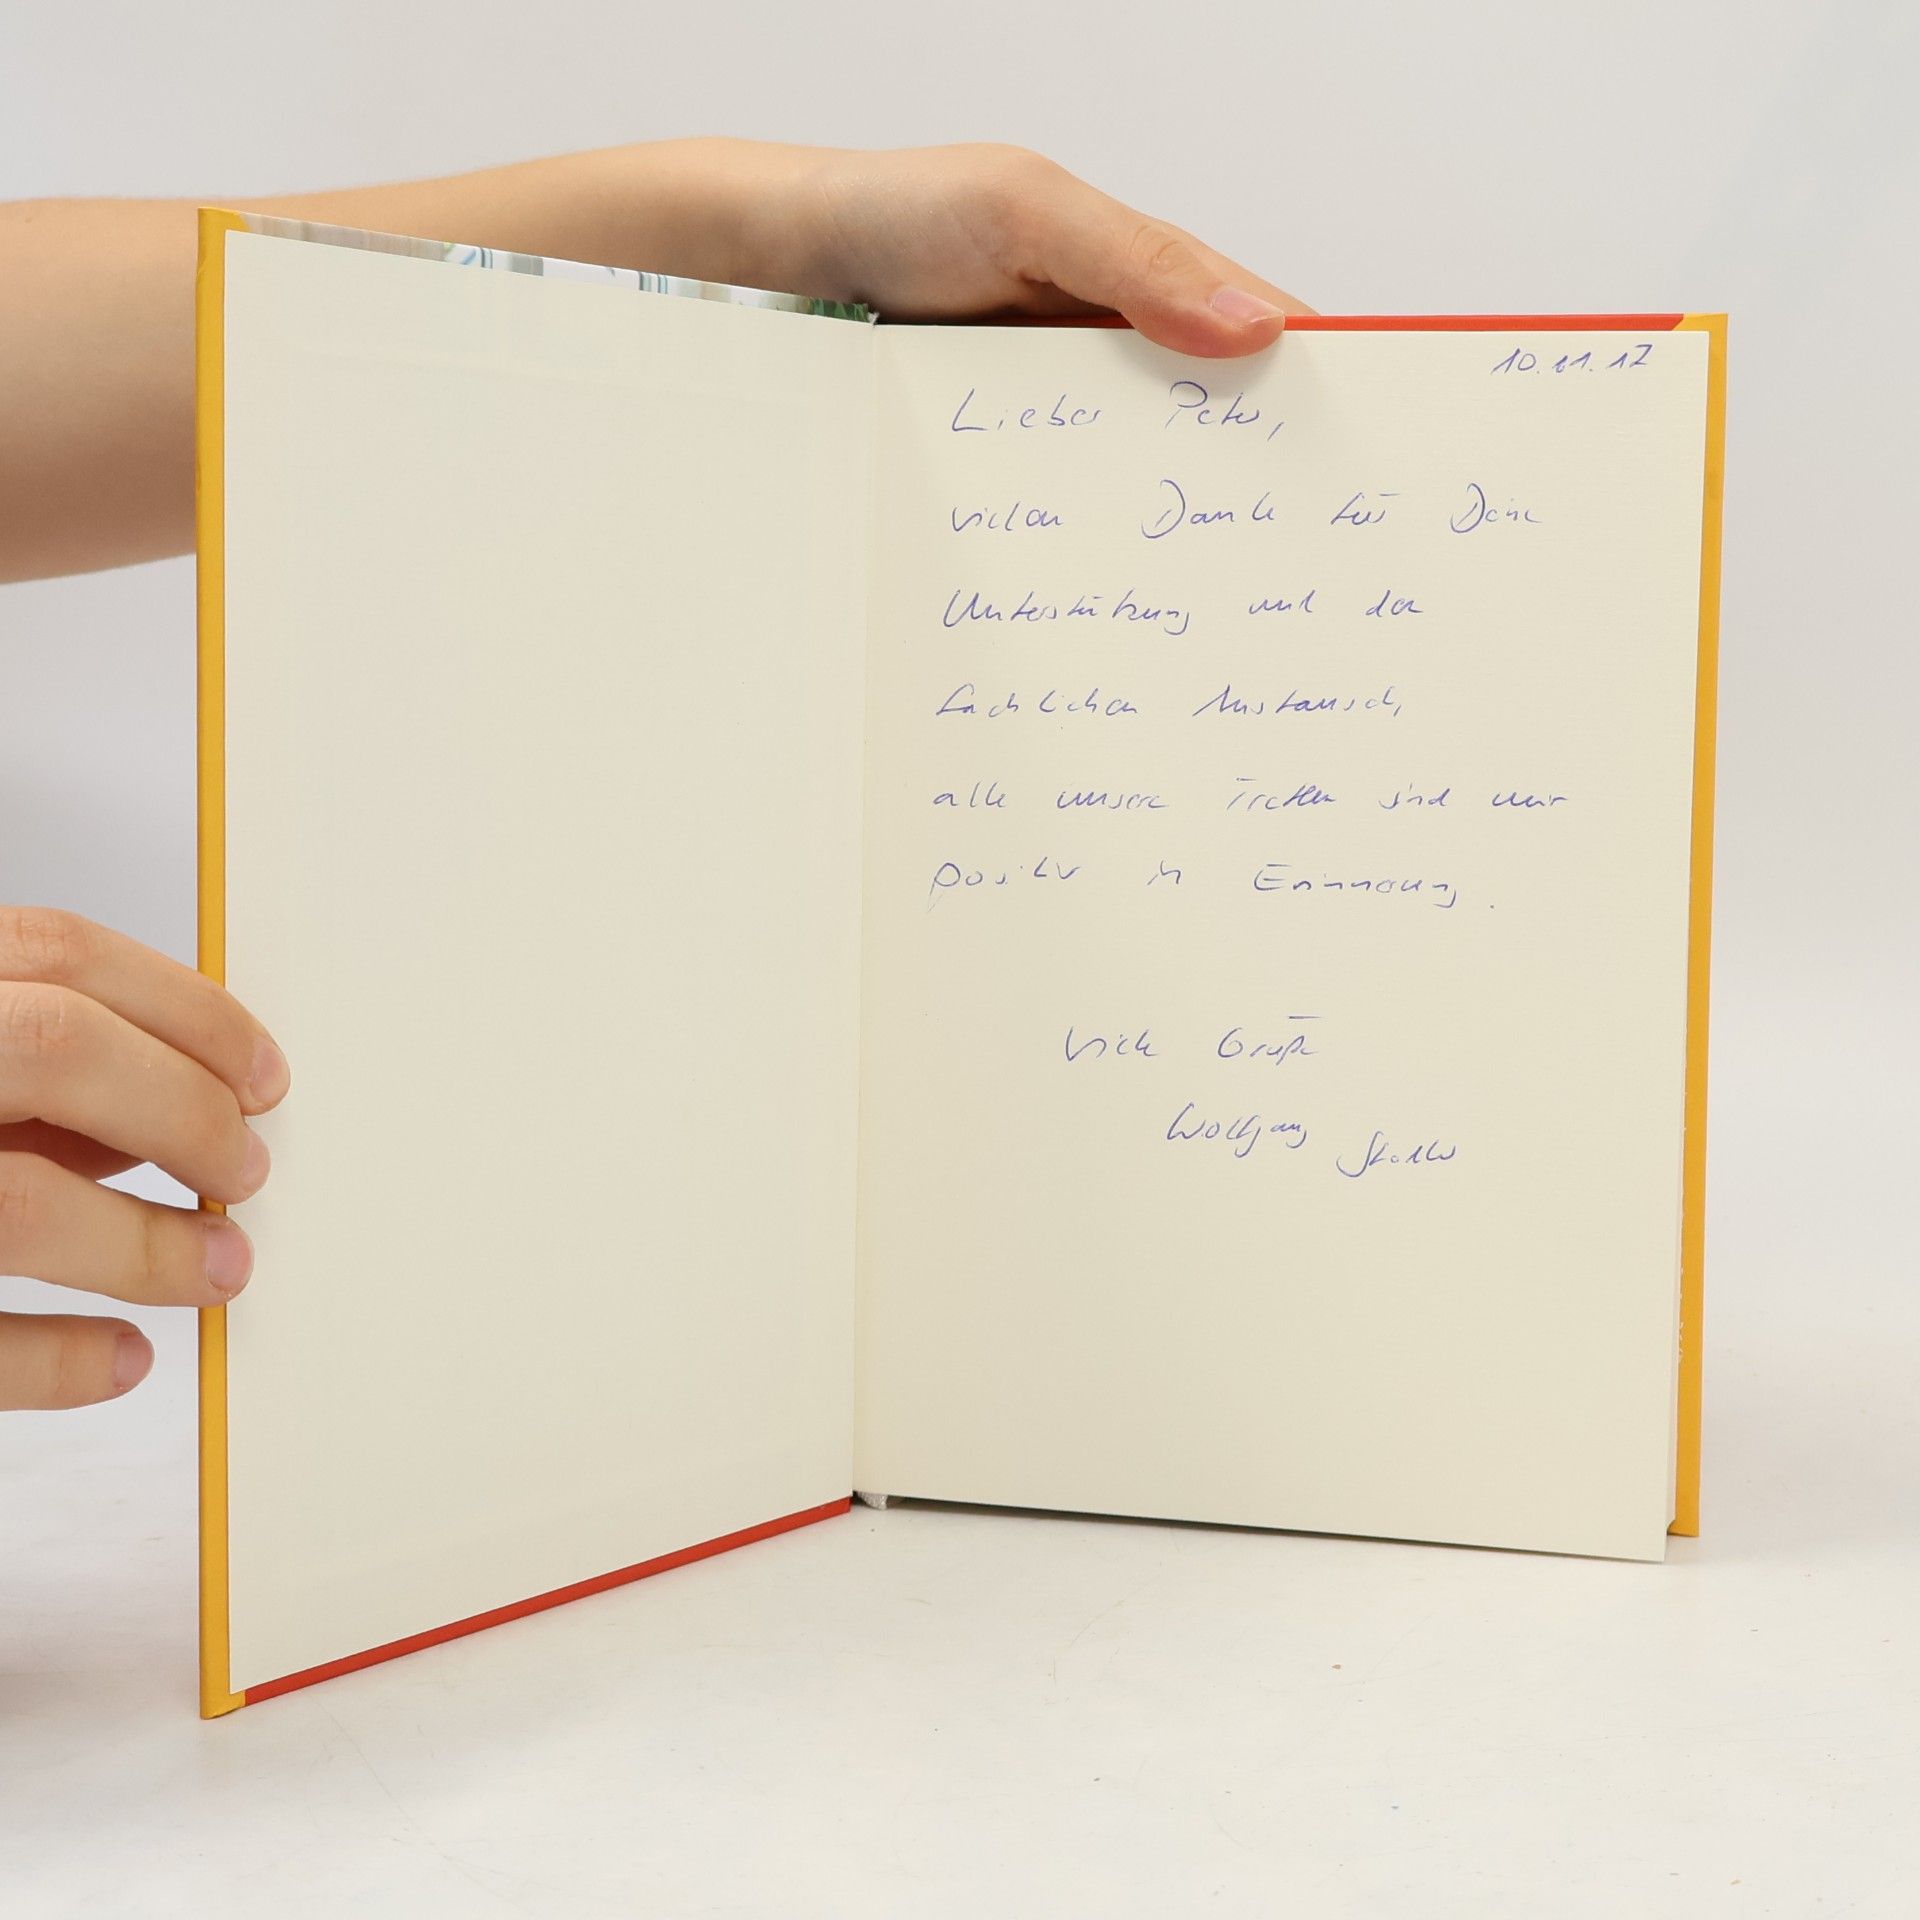 10.11.17
Lieber Peter,
vielen Dank für Deine
Unterstützung und den
fachlichen Austausch,
alle unsere Treffen sind mir
positiv in Erinnerung.
Viele Grüße
Wolfgang